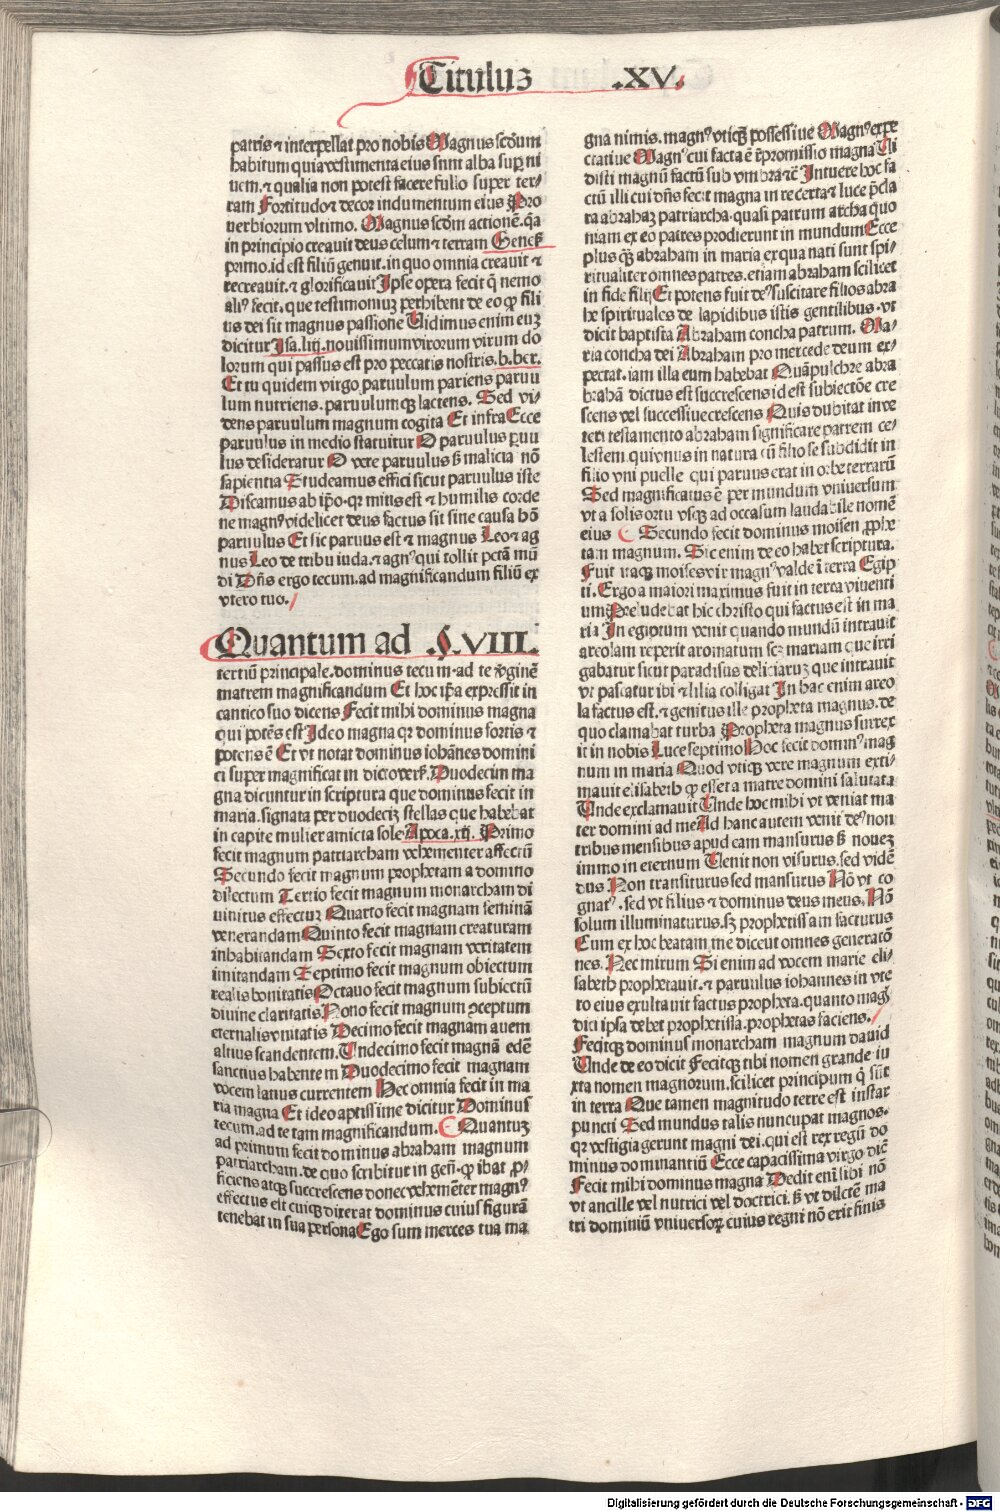 Titulus .XV.
patris ⁊ interpellat pro nobis Magnus scd̄um
habitum quia vestimenta eius sunt alba suꝑ ni
uem. ⁊ qualia non potest facere fullo super ter/
ram Fortitudo ⁊ decor indumentum eius Pro
uerbiorum vltimo. Magnus scd̄m actionē. q̄a
in principio creauit deus celum ⁊ terram Geneẜ
primo. id est filiū genuit. in quo omnia creauit ⁊
recreauit. ⁊ glorificauit Ipse opera fecit q̄ nemo
aliꝰ fecit. que testimoniuʒ perhibent de eo ꝙ fili
us dei sit magnus passione Uidimus enim euʒ
dicitur Isa. liij. nouissimum virorum virum do
lorum qui passus est pro peccatis nostris. b. ber.
Et tu quidem virgo paruulum pariens paruu
lum nutriens. paruulumqꝫ lactens. Sed vi/
dens paruulum magnum cogita Et infra Ecce
paruulus in medio statuitur O paruulus ꝑuu
lus desideratur O vere paruulus ẜ malicia nō
sapientia Studeamus effici sicut paruulus iste
Discamus ab ip̄o. qꝛ mitis est ⁊ humilis corde
ne magnꝰ videlicet deus factus sit sine causa hō
paruulus Et sic paruus est ⁊ magnus Leo ⁊ ag
nus Leo de tribu iuda. ⁊ agnꝰ qui tollit pctā mū
di Dn̄s ergo tecum. ad magnificandum filiū ex
vtero tuo.
Quantum ad .§. VIII.
tertiū principale. dominus tecum. ad te v̓ginē
matrem magnificandum Et hoc ip̄a expressit in
cantico suo dicens Fecit mihi dominus magna
qui potēs est Ideo magna qꝛ dominus fortis ⁊
potens ē Et vt notat dominus iohānes domini
ci super magnificat in dicto verẜ. Duodecim ma
gna dicuntur in scriptura que dominus fecit in
maria. signata per duodeciʒ stellas que habebat
in capite mulier amicta sole Apoca. xij. Primo
fecit magnum patriarcham vehementer affectū
Secundo fecit magnum prophetam a domino
dilectum Tertio fecit magnum monarcham di
uinitus effectuʒ Quarto fecit magnam feminā
venerandam Quinto fecit magnam creaturam
inhabitandam Sexto fecit magnam veritatem
imitandam Septimo fecit magnum obiectum
realis bonitatis Octauo fecit magnum subiectū
diuine claritatis Nono fecit magnum ↄceptum
eternalis vnitatis Decimo fecit magnam auem
altius scandentem. Undecimo fecit magnā edē
sanctius habentem Duodecimo fecit magnam
vocem latius currentem Hec omnia fecit in ma
ria magna Et ideo aptissime dicitur Dominus
tecum. ad te tam magnificandum. Quantuʒ
ad primum fecit dominus abraham magnum
patriarcham. de quo scribitur in gen̄. ꝙ ibat ꝓ/
ficiens atqꝫ succrescens donec vehemēter magnꝰ
effectus est cuiqꝫ dixerat dominus cuius figurā
tenebat in sua persona Ego sum merces tua ma
gna nimis. magnꝰ vtiqꝫ possessiue Magnꝰ expe
ctatiue Magnꝰ cui facta ē ꝓ̄missio magna Ui
disti magnū factū sub vmbra ⁊c̄ Intuere hoc fa
ctū illi cui dn̄s fecit magna in re certa ⁊ luce p̄cla
ra abrahaʒ patriarcha. quasi patrum archa quo
niam ex eo patres prodierunt in mundum Ecce
plus qꝫ abraham in maria ex qua nati sunt spi/
ritualiter omnes patres. etiam abraham scilicet
in fide filij Et potens fuit deꝰ suscitare filios abra
he spirituales de lapidibus istis gentilibus. vt
dicit baptista Abraham concha patrum. Ma/
ria concha dei Abraham pro mercede deum ex/
pectat. iam illa eum habebat Quā pulchre abra
hā dictus est succrescens id est subiectōe cre
scens vel successiue crescens Quis dubitat in ve
teri testamento abraham significare patrem ce/
lestem. qui vnus in natura cū filio se subdidit in
filio vni puelle qui paruus erat in orbe terrarū
Sed magnificatus ē per mundum vniuersum
vt a solis ortu vsqꝫ ad occasum laudabile nomē
eius Secundo fecit dominus moisen ꝓphe
tam magnum. Sic enim de eo habet scriptura.
Fuit itaqꝫ moises vir magnꝰ valde ī terra Egip
ti. Ergo a maiori maximus fuit in terra viuenti
um Preludebat hic christo qui factus est in ma
ria In egiptum venit quando mundū intrauit
areolam reperit aromatum scʒ mariam que irri
gabatur sicut paradisus deliciaruʒ que intrauit
vt pascatur ibi ⁊ lilia colligat In hac enim areo
la factus est. ⁊ genitus ille propheta magnus. de
quo clamabat turba Propheta magnus surrex
it in nobis Luce septimo Hoc fecit dominꝰ mag
num in maria Quod vtiqꝫ vere magnum exti/
mauit elisabeth ꝙ esset a matre domini salutata
Unde exclamauit Unde hoc mihi vt veniat ma
ter domini ad me Ad hanc autem venit deꝰ non
tribus mensibus apud eam mansurus ẜ noueʒ
immo in eternum Uenit non visurus. sed vidē
dus Non transiturus sed mansurus Nō vt co
gnatꝰ. sed vt filius ⁊ dominus deus meus. Nō
solum illuminaturus. sʒ prophetissam facturus
Cum ex hoc beatam me dicent omnes generatō
nes. Nec mirum Si enim ad vocem marie eli/
sabeth prophetauit. ⁊ paruulus iohannes in vte
ro eius exultauit factus propheta. quanto magꝭ
dici ipsa debet prophetissa. prophetas faciens.
Fecitqꝫ dominus monarcham magnum dauid
Unde de eo dicit Fecitqꝫ tibi nomen grande iu
xta nomen magnorum. scilicet principum q̄ sūt
in terra Que tamen magnitudo terre est instar
puncti Sed mundus talis nuncupat magnos.
qꝛ vestigia gerunt magni dei. qui est rex regū do
minus dominantiū Ecce capacissima virgo dic̄
Fecit mihi dominus magna Dedit eni libi nō
vt ancille vel nutrici vel doctrici. ẜ vt dilcte ma
tri dominiū vniuersoꝝ cuius regni nō erit finis